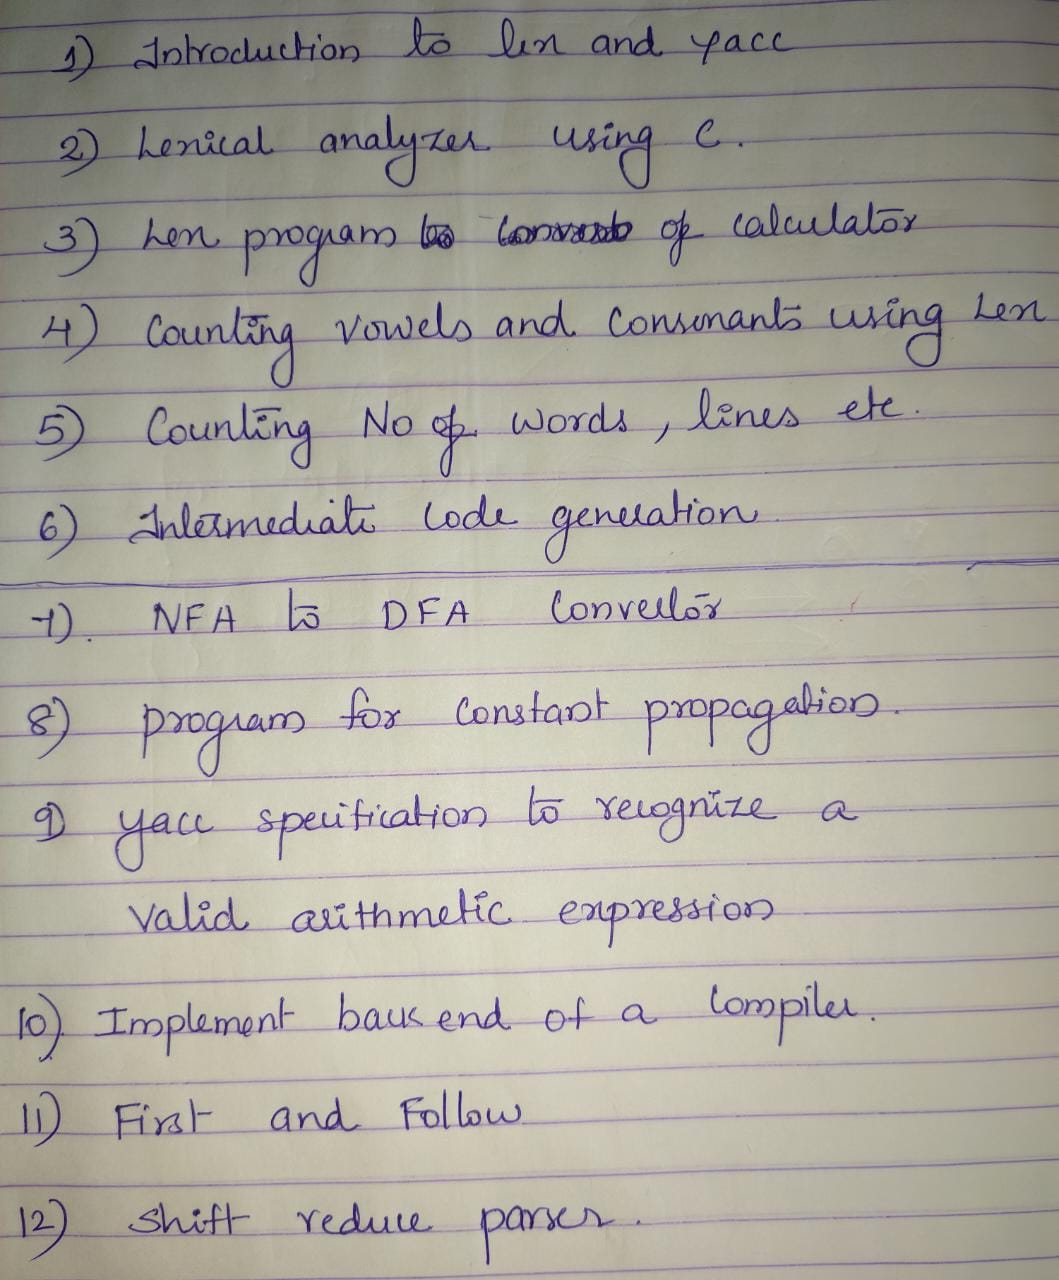 1) Introduction to lex and yacc
2) Lexical analyzer using C.
3) Lex program to of calculator
4) Counting vowels and consonants using Lex
5) Counting No of words, lines etc.
6) Intermediate code generation
7). NFA to DFA Convertor
8) program for constant propagation.
9) yacc specification to recognize a
valid arithmetic expression
10) Implement back end of a compiler.
11) First and Follow
12) Shift reduce parser.